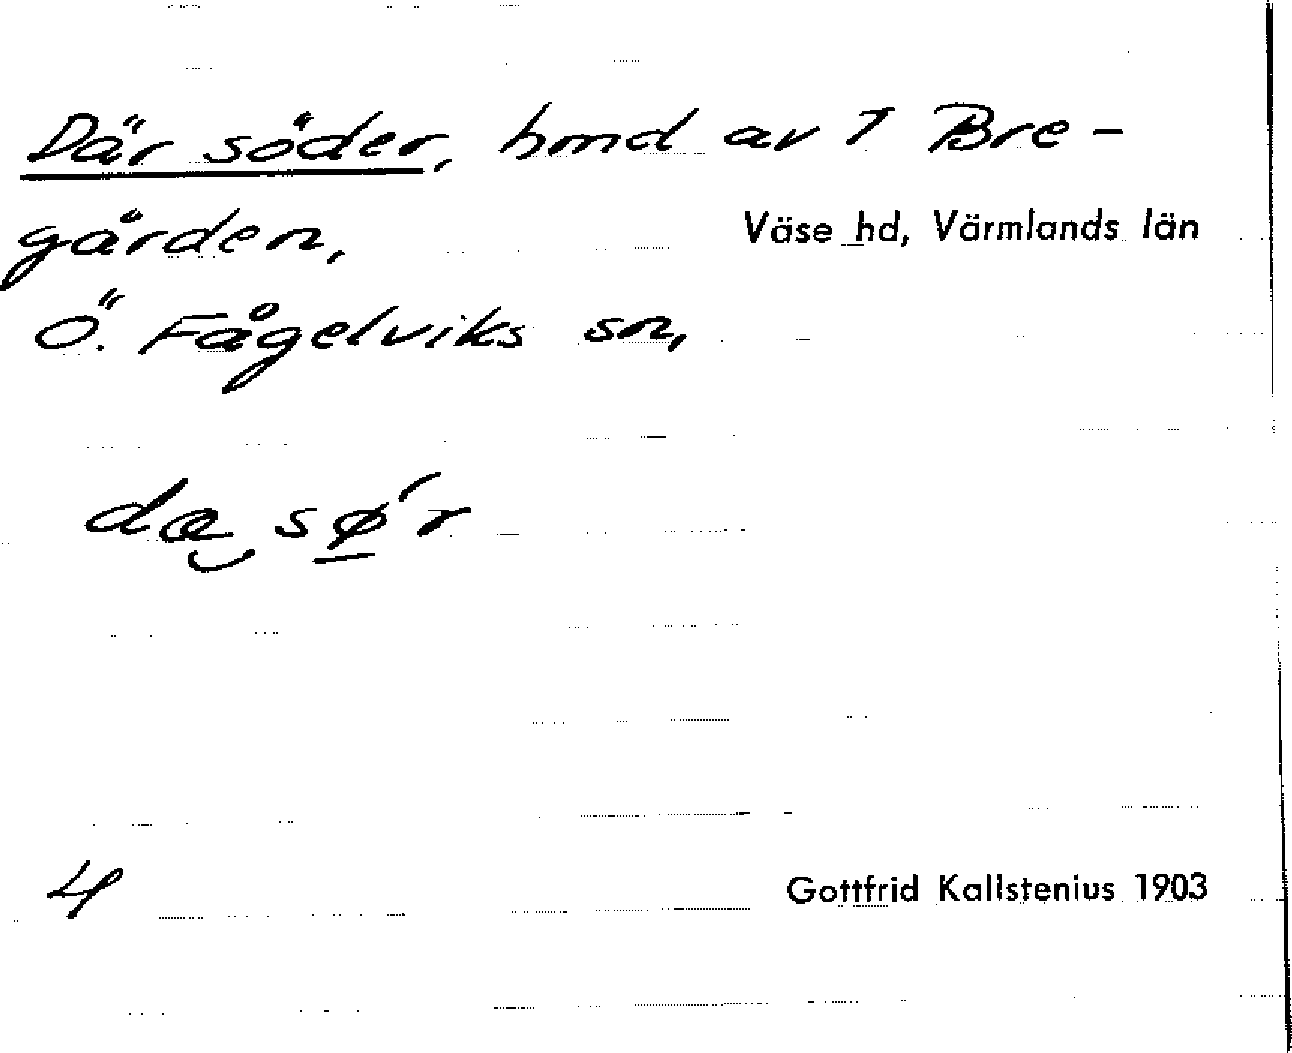 Där söder, hmd av 1 Bre-
gården,
Väse hd, Värmlands län
Ö. Fågelviks sn,
dæ sǿ̱r
4
Gottfrid Kallstenius 1903